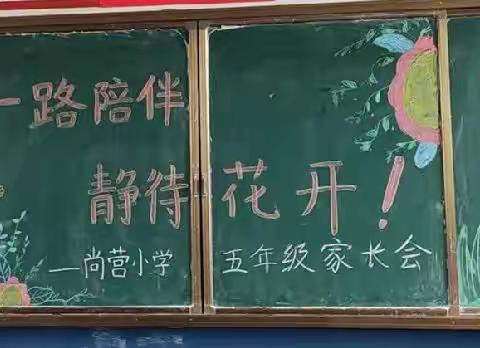 一路陪伴
静待花开！
—尚营小学 五年级家长会